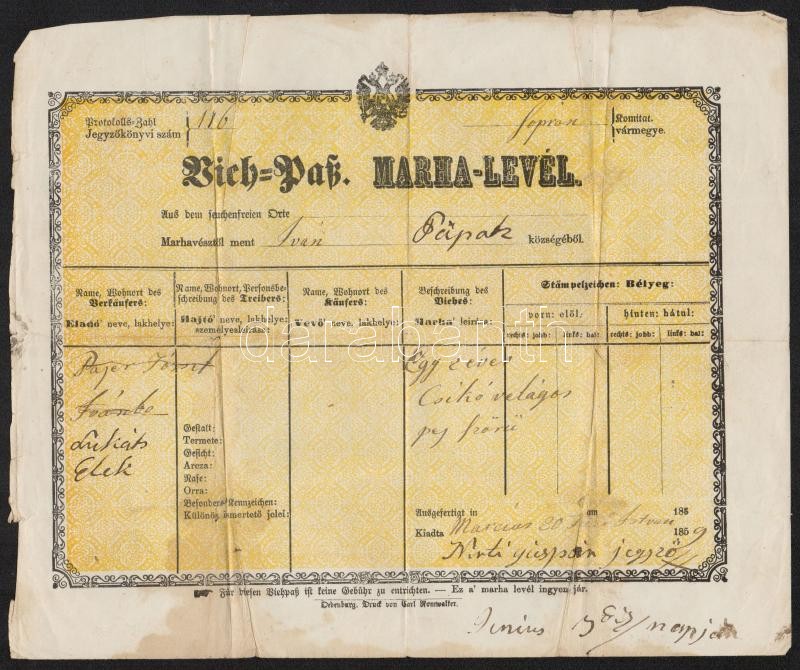 Protokolls-Zahl
Jegyzőkönyvi szám } 116
Soprón { Komitat.
vármegye.
Vieh=Paß. MARHA-LEVÉL.
Aus dem seuchenfreien Orte
Marhavésztől ment Iván Pápatz községéből.
Name, Wohnort des Verkäufers:
Eladó neve, lakhelye:
Name, Wohnort, Personsbeschreibung des Treibers:
Hajtó neve, lakhelye: személyesleirása:
Name, Wohnort des Käufers:
Vevő neve, lakhelye:
Beschreibung des Viehes:
Marha' leirása:
Stämpelzeichen: Bélyeg:
vorn: elől:
hinten: hátul:
rechts: jobb:
links: bal:
rechts: jobb:
links: bal:
Pajer József
Ivánba
Lukáts
Elek
Egy eves
Csikó velágos
pej szőrü
Gestalt:
Termete:
Gesicht:
Arcza:
Nase:
Orra:
Besondere Kennzeichen:
Különös ismertető jelei:
Ausgefertigt in am 185
Kiadta Marczius 20 István 1859
jegyző
Für diesen Viehpaß ist keine Gebühr zu entrichten. — Ez a' marha levél ingyen jár.
Oedenburg. Druck von Carl Romwalter.
Junius napján
darabanth